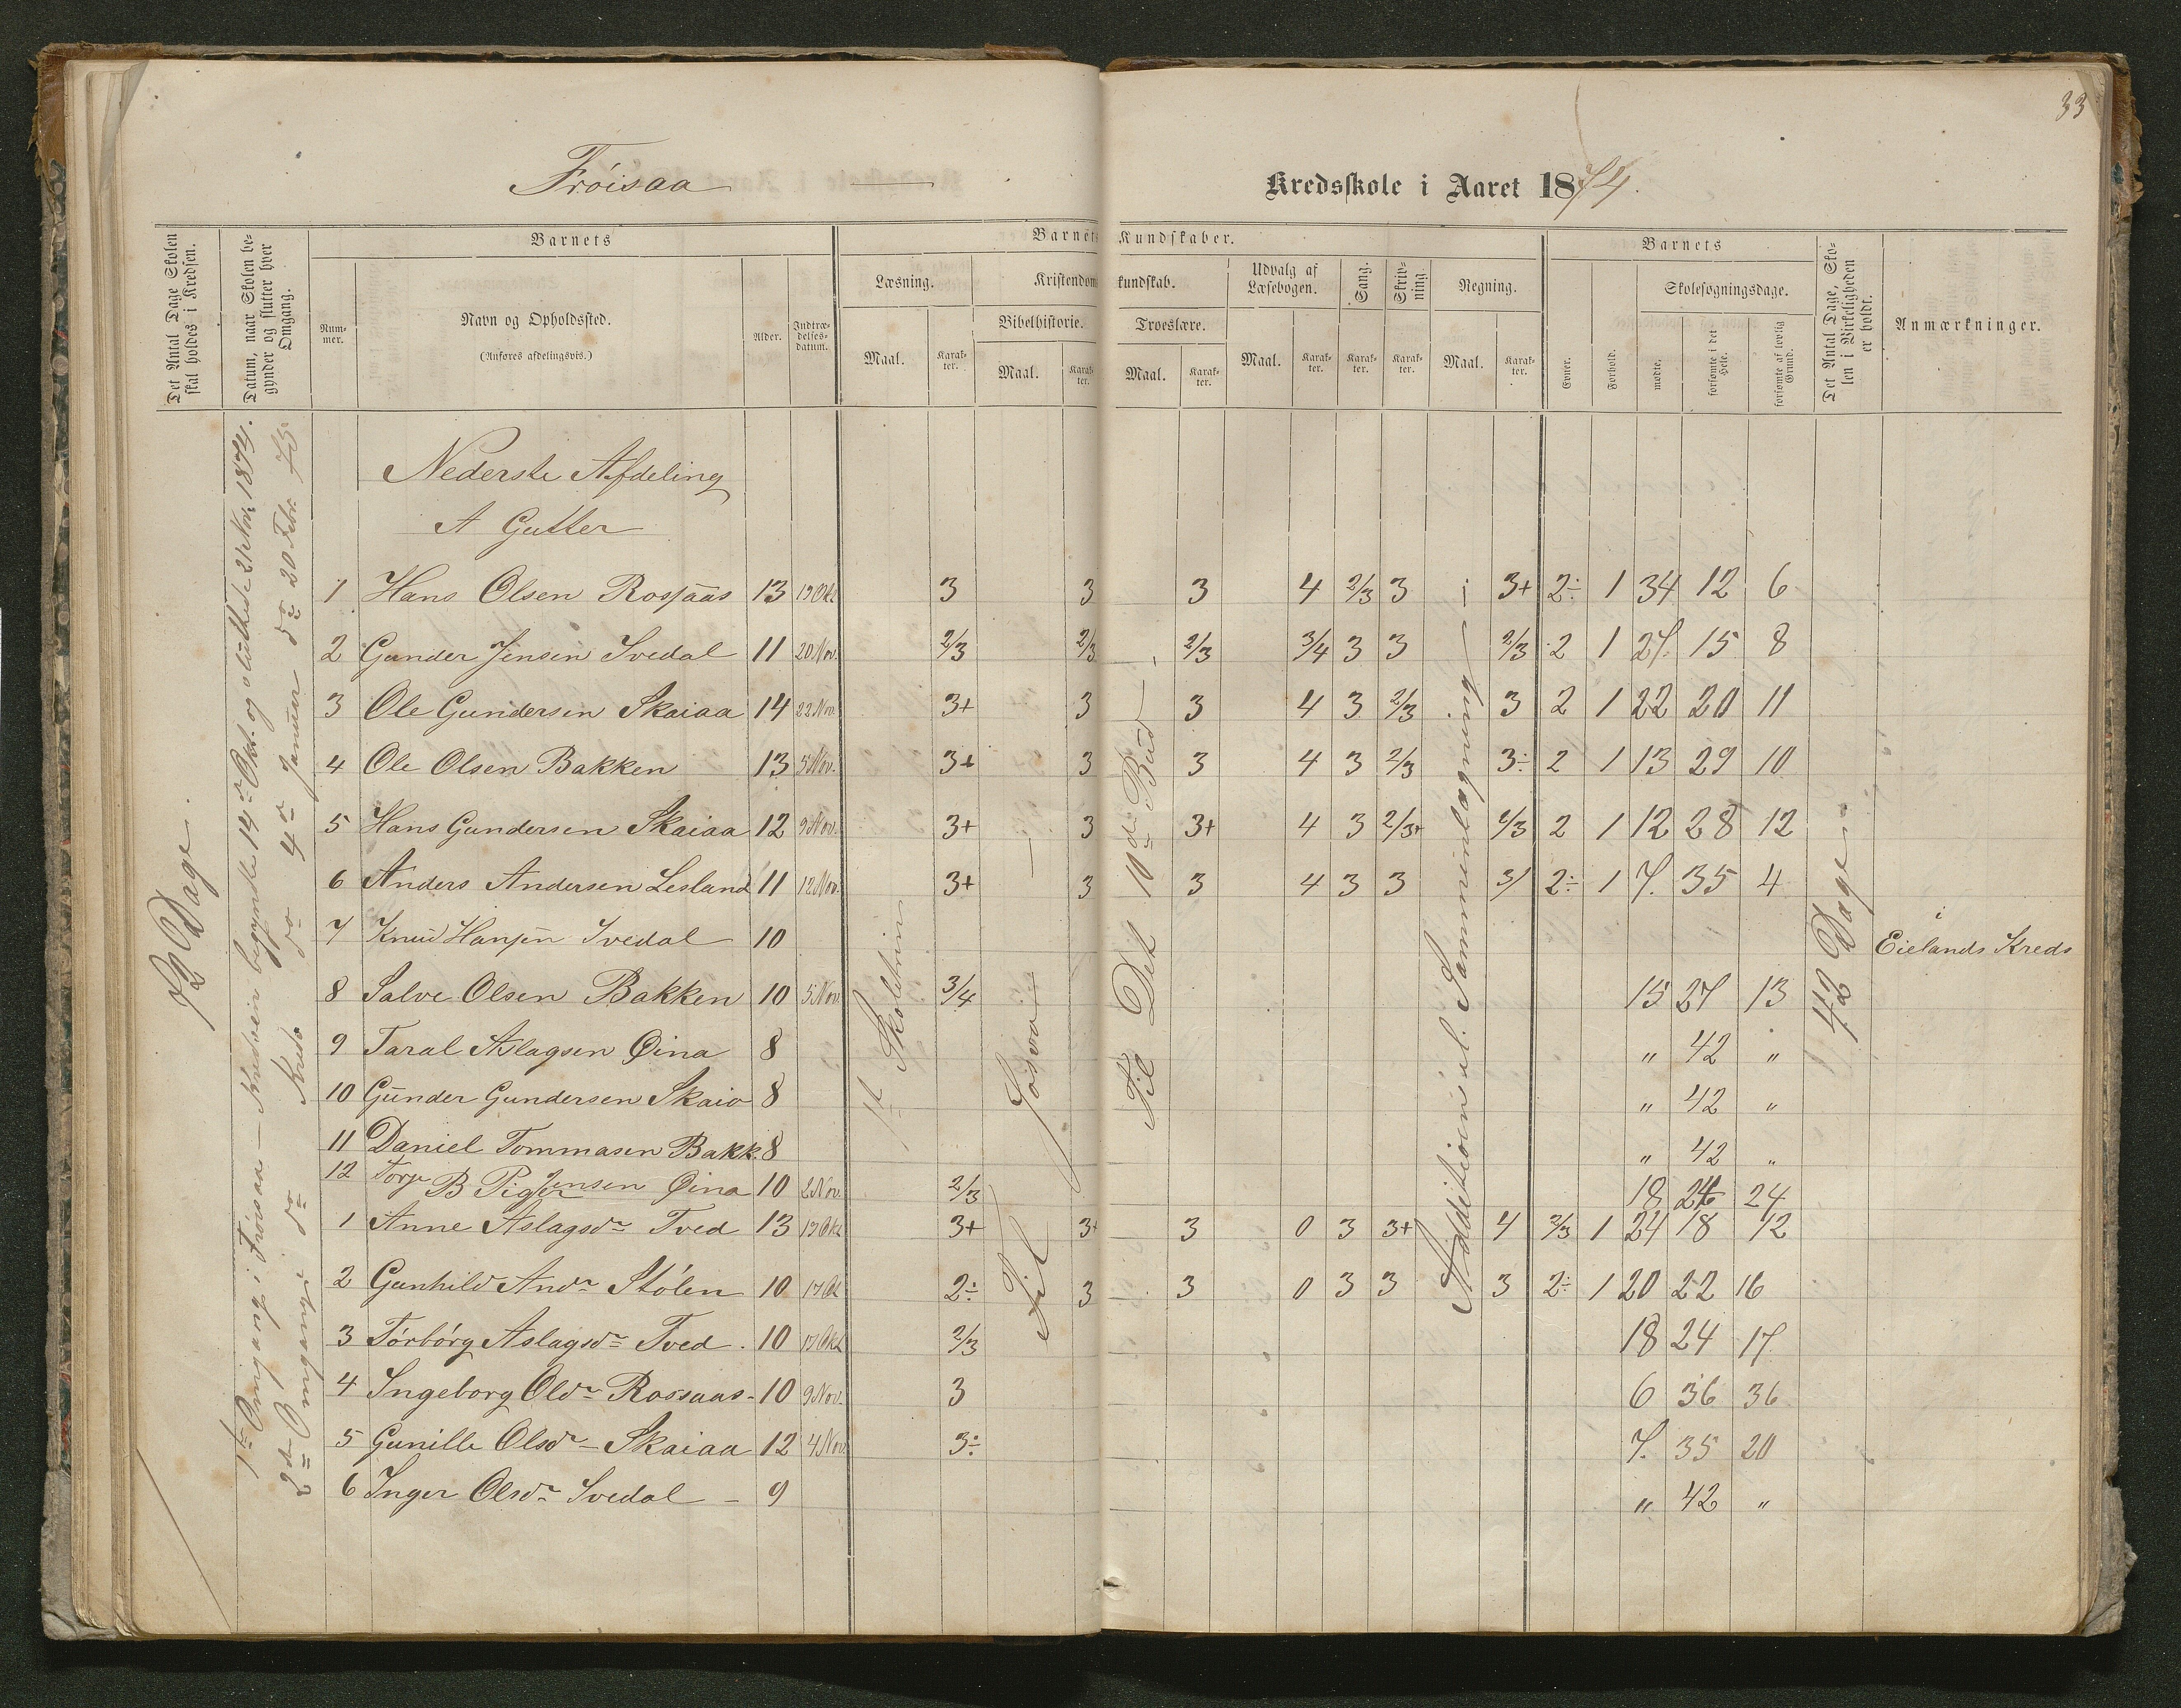 33
Frøisaa
Kredsskole i Aaret 1874.
Det Antal Dage Skolen skal holdes i Kredsen.
Datum, naar Skolen begynder og slutter hver Omgang.
Barnets
Nummer.
Navn og Opholdssted.
(Anføres afdelingsvis.)
Alder.
Indtrædelsesdatum.
Barnets Kundskaber.
Læsning.
Maal.
Karakter.
Kristendomskundskab.
Bibelhistorie.
Maal.
Karakter.
Troeslære.
Maal.
Karakter.
Udvalg af Læsebogen.
Maal.
Karakter.
Sang.
Karakter.
Skrivning.
Karakter.
Regning.
Maal.
Karakter.
Barnets
Evner.
Forhold.
Skolesøgningsdage.
mødte.
forsømte i det Hele.
forsømte af lovlig Grund.
Det Antal Dage, Skolen i Virkeligheden er holdt.
Anmærkninger.
72 Dage.
1ste Omgang i Frøisaa – Kredsen begyndte 14de Okt. og sluttede 21 Nov. 1874.
2den Omgang i do Kreds do 4de Januar do 20 Febr. 75
1ste Skoletrin
Til Josva
Til Det 10de Bud
Additionen i ul. Sammenlægning
42 Dage
Nederste Afdeling
A Gutter
1 Hans Olsen Rosjaas 13 19 Okt 3 3 3 4 2/3 3 3+ 2÷ 1 34 12 6
2 Gunder Jensen Ivedal 11 20 Nov. 2/3 2/3 2/3 3/4 3 3 2/3 2 1 27 15 8
3 Ole Gundersen Skaiaa 14 22 Nov. 3+ 3 3 4 3 2/3 3 2 1 22 20 11
4 Ole Olsen Bakken 13 5 Nov. 3+ 3 3 4 3 2/3 3÷ 2 1 13 29 10
5 Hans Gundersen Skaiaa 12 9 Nov. 3+ 3 3+ 4 3 2/3+ 2/3 2 1 12 28 12
6 Anders Andersen Lesland 11 12 Nov. 3+ 3 3 4 3 3 3/ 2÷ 1 7. 35 4
7 Knud Hansen Ivedal 10 i Eielands Kreds
8 Salve Olsen Bakken 10 5 Nov 3/4 15 27 13
9 Taral Aslagsen Øina 8 " 42 "
10 Gunder Gundersen Skaio 8 " 42 "
11 Daniel Tommasen Bakk. 8 " 42 "
12 Torje Jensen Øina 10 2 Nov. 2/3 18 24 24
B Piger
1 Anne Aslagsdr Tved 13 19 Okt 3+ 3+ 3 0 3 3+ 4 2/3 1 24 18 12
2 Gunhild Andr Stólen 10 17 Ok 2÷ 3 3 0 3 3 3 2÷ 1 20 22 16
3 Tórbórg Aslagsdr Tved. 10 17 Okt 2/3 18 24 17
4 Ingeborg Oldr Rossaas - 10 9 Nov. 3 6 36 36
5 Gunille Olsdr - Skaiaa 12 4 Nov. 3÷ 7. 35 20
6 Inger Olsdr Ivedal - 9 " 42 "